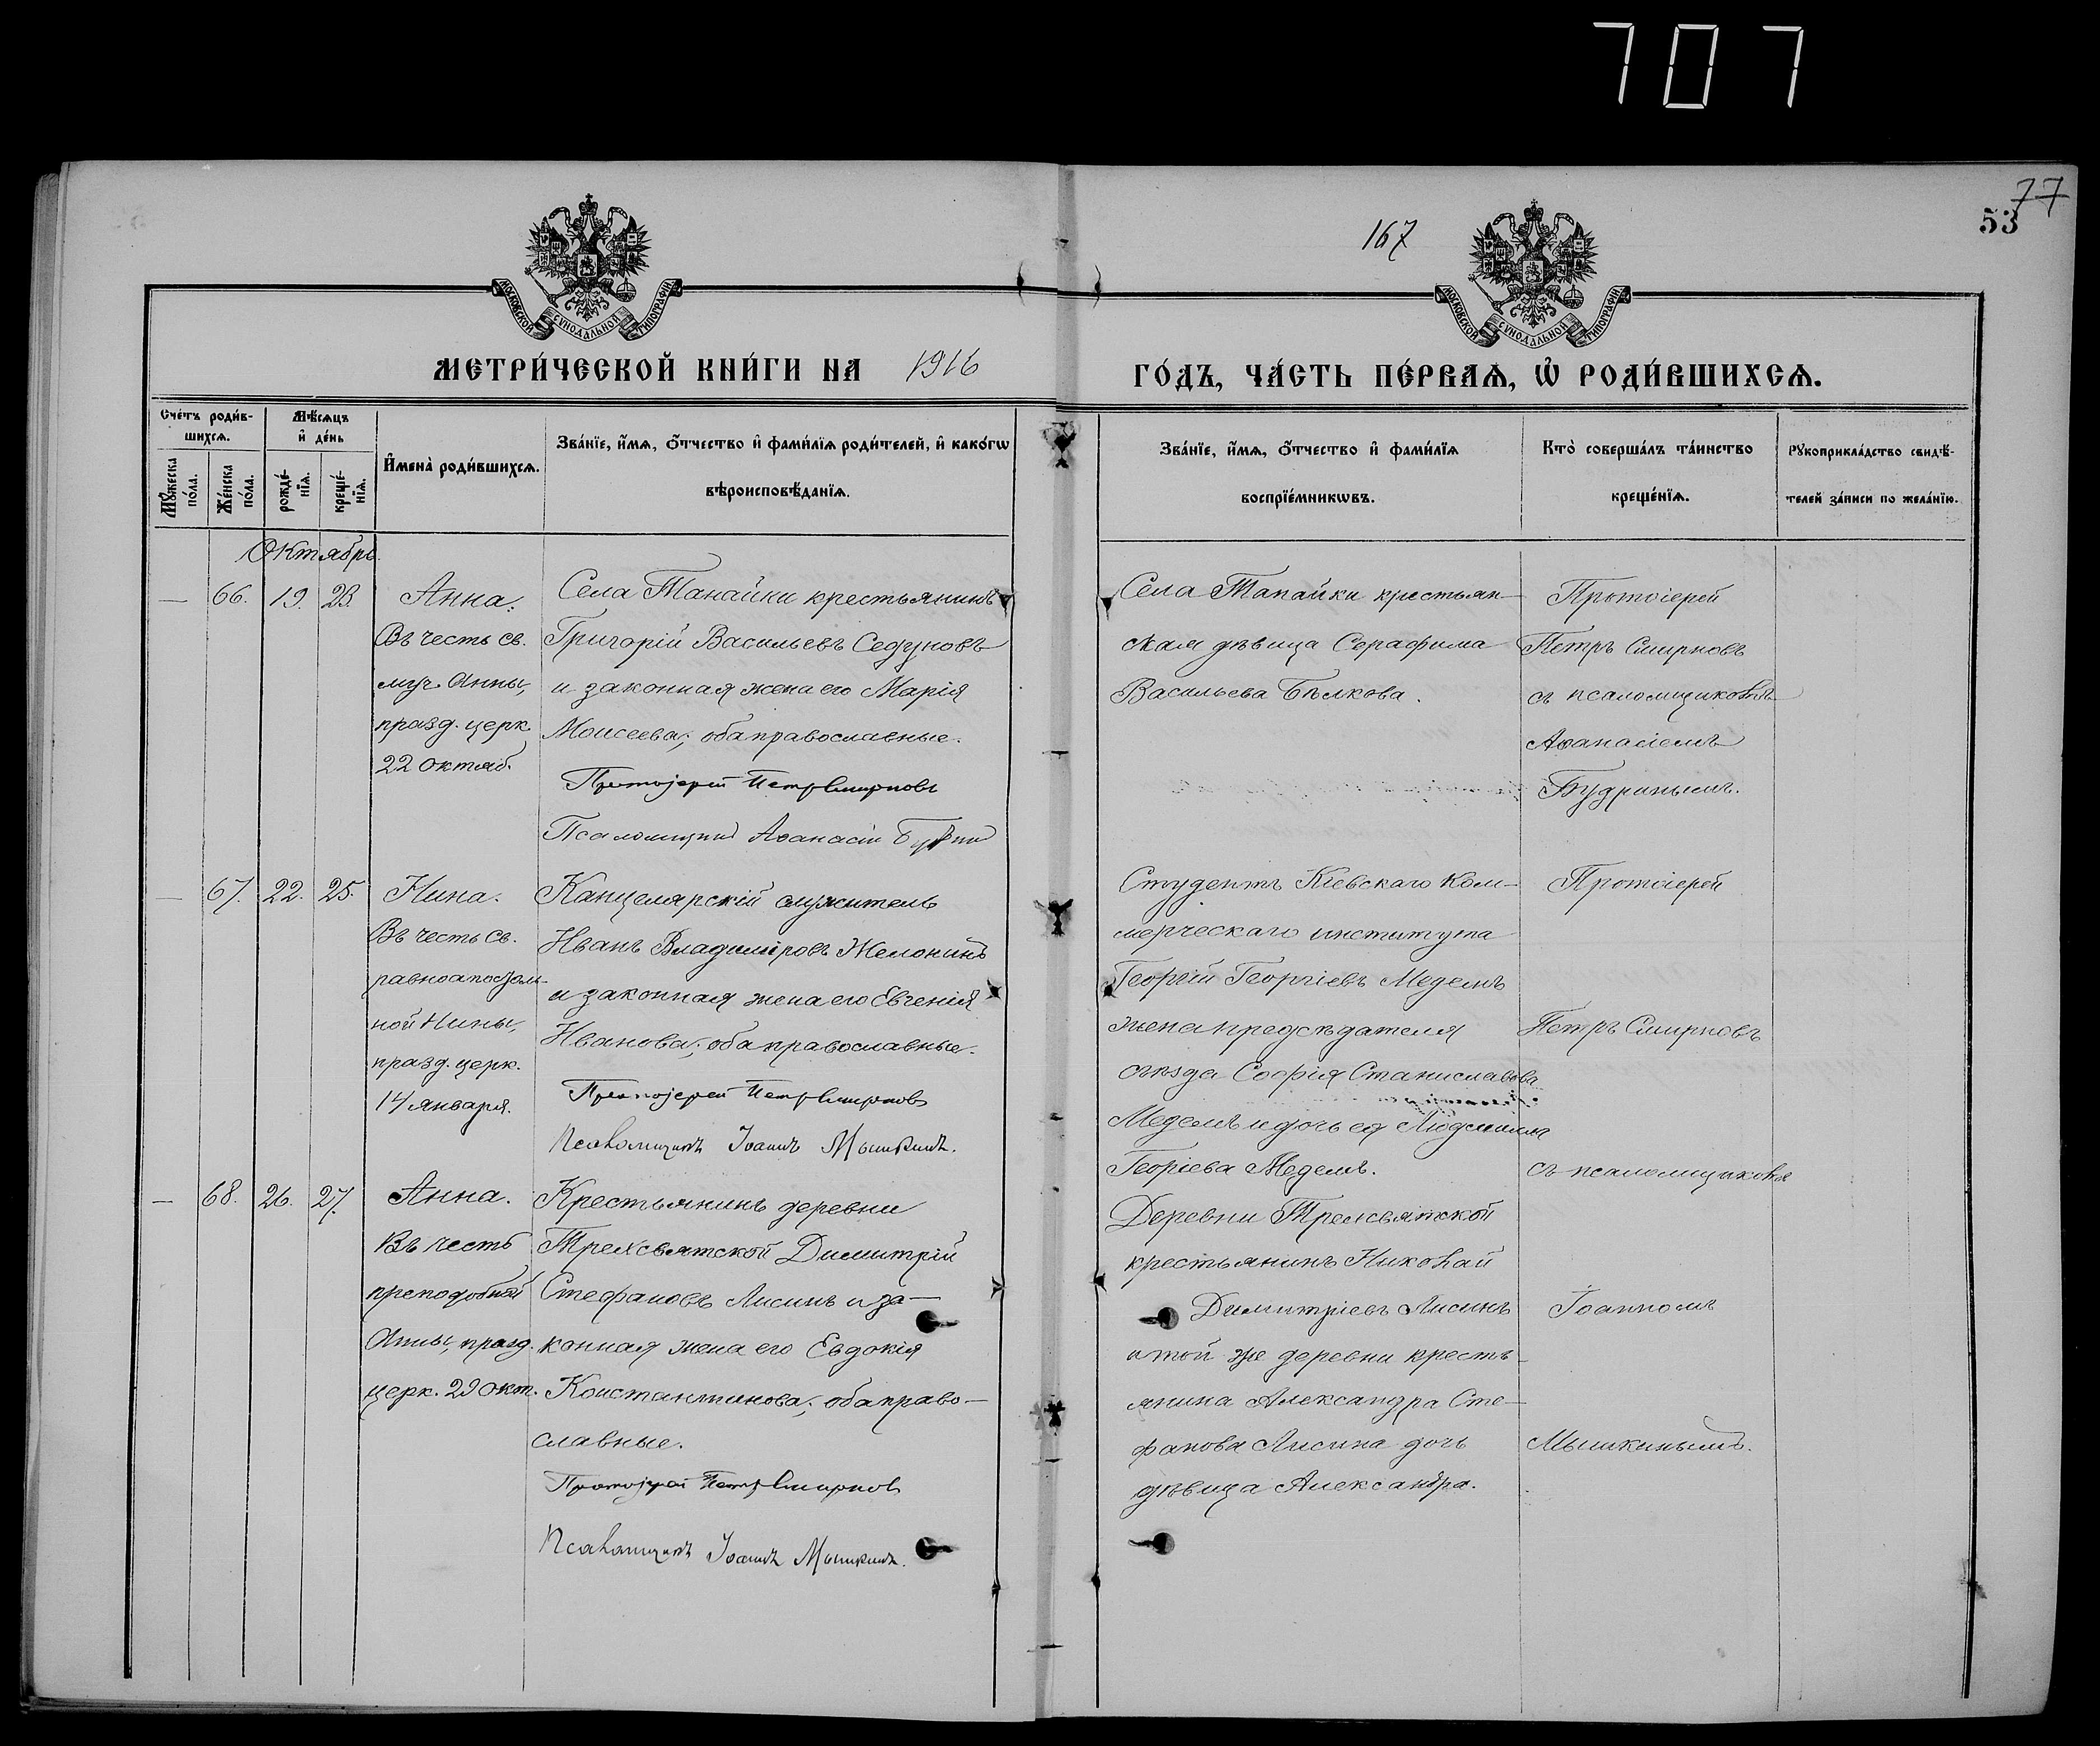 707
77
53
167
МОСКОВСКОЙ СѴНОДАЛЬНОЙ ТИПОГРАФІИ
МОСКОВСКОЙ СѴНОДАЛЬНОЙ ТИПОГРАФІИ
МЕТРИ́ЧЕСКОЙ КНИ́ГИ НА 1916
ГО́ДЪ, ЧА́СТЬ ПЕ́РВАѦ, Ѡ РОДИ́ВШИХСѦ.
Сче́тъ роди́в-
шихсѧ.
Мꙋ́жеска по́ла.
Же́нска по́ла.
Мѣ́сѧцъ
и де́нь
рожде́-
нїѧ.
креще́-
нїѧ.
И҆мена̀ роди́вшихсѧ.
Зва́нїе, и҆́мѧ, ѻ҆́тчество и҆ фами́лїѧ роди́телей, и҆ како́гѡ
вѣроисповѣ́данїѧ.
Зва́нїе, и҆́мѧ, ѻ҆́тчество и҆ фами́лїѧ
воспрїе́мникѡвъ.
Кто̀ соверша́лъ та́инство
креще́нїѧ.
Рꙋкоприкла́дство свидѣ́-
телей за́писи по жела́нїю.
Октябрь.
— 66. 19. 23.
Анна.
Въ честь св.
муч. Анны,
празд. церк.
22 октяб.
Села Танайки крестьянинъ
Григорій Васильевъ Седуновъ
и законная жена его Марія
Моисеева; оба православные.
Протоіерей Петръ Смирновъ
Псаломщикъ Аѳанасій
Села Танайки крестьян-
ская дѣвица Серафима
Васильева Бѣлкова.
Протоіерей
Петръ Смирновъ
съ псаломщикомъ
Аѳанасіемъ
Будринымъ.
— 67. 22. 25.
Нина.
Въ честь св.
равноапостоль-
ной Нины,
празд. церк.
14 января.
Канцелярскій служитель
Иванъ Владиміровъ Желонинъ
и законная жена его Евгенія
Иванова; оба православные.
Протоіерей Петръ Смирновъ
Псаломщикъ Іоаннъ Мышкинъ.
Студентъ Кіевскаго Ком-
мерческаго института
Георгій Георгіевъ Медемъ
жена предсѣдателя
съѣзда Софія Станиславова
Медемъ и дочь ея Людмила
Георгіева Медемъ.
Протоіерей
Петръ Смирновъ
съ псаломщикомъ
— 68. 26. 27.
Анна.
Въ честь
преподобной
Анны, празд.
церк. 29 окт.
Крестьянинъ деревни
Трехсвятской Димитрій
Стефановъ Лисинъ и за-
конная жена его Евдокія
Константинова; оба право-
славные.
Протоіерей Петръ Смирновъ
Псаломщикъ Іоаннъ Мышкинъ.
Деревни Трехсвятской
крестьянинъ Николай
Димитріевъ Лисинъ
и той же деревни кресть-
янина Александра Сте-
фанова Лисина дочь
дѣвица Александра.
Іоанномъ
Мышкинымъ.